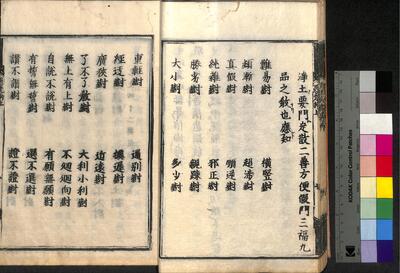 淨土要門定散二善方便假門三福九
品之教也應知
難易對 橫豎對
頓漸對 超涉對
真假對 順逆對
純雜對 邪正對
勝劣對 親疎對
大小對 多少對
重輕對 通別對
經迂對 捷遲對
廣狹對 近遠對
了不了教對 大利小利對
無上有上對 不回迴向對
自說不說對 有願無願對
有誓無誓對 選不選對
讚不讚對 證不證對
KODAK Color Control Patches